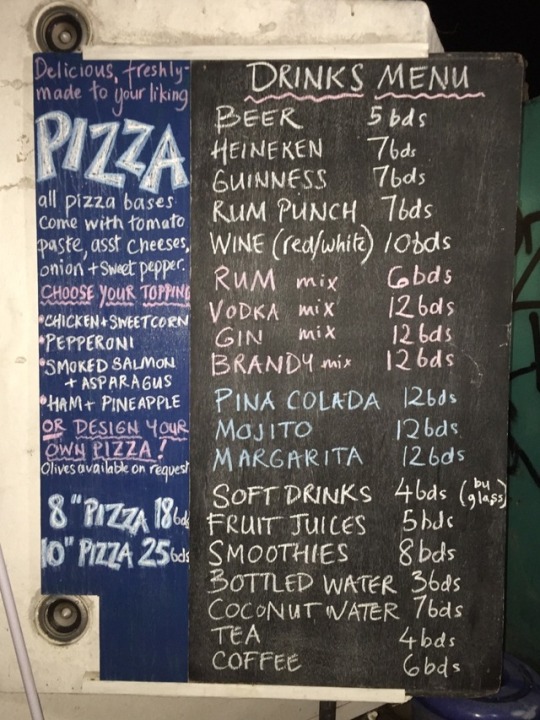 Delicious, freshly-
made to your liking
PIZZA
all pizza bases
come with tomato
paste, asst cheeses,
onion + sweet pepper.
CHOOSE YOUR TOPPING
• CHICKEN + SWEETCORN
• PEPPERONI
• SMOKED SALMON
+ ASPARAGUS
• HAM + PINEAPPLE
OR DESIGN YOUR
OWN PIZZA!
Olives available on request
8" PIZZA 18bds
10" PIZZA 25bds
DRINKS MENU
BEER 5bds
HEINEKEN 7bds
GUINNESS 7bds
RUM PUNCH 7bds
WINE (red/white) 10bds
RUM mix 6bds
VODKA mix 12bds
GIN mix 12bds
BRANDY mix 12bds
PINA COLADA 12bds
MOJITO 12bds
MARGARITA 12bds
SOFT DRINKS 4bds (by glass)
FRUIT JUICES 5bds
SMOOTHIES 8bds
BOTTLED WATER 3bds
COCONUT WATER 7bds
TEA 4bds
COFFEE 6bds